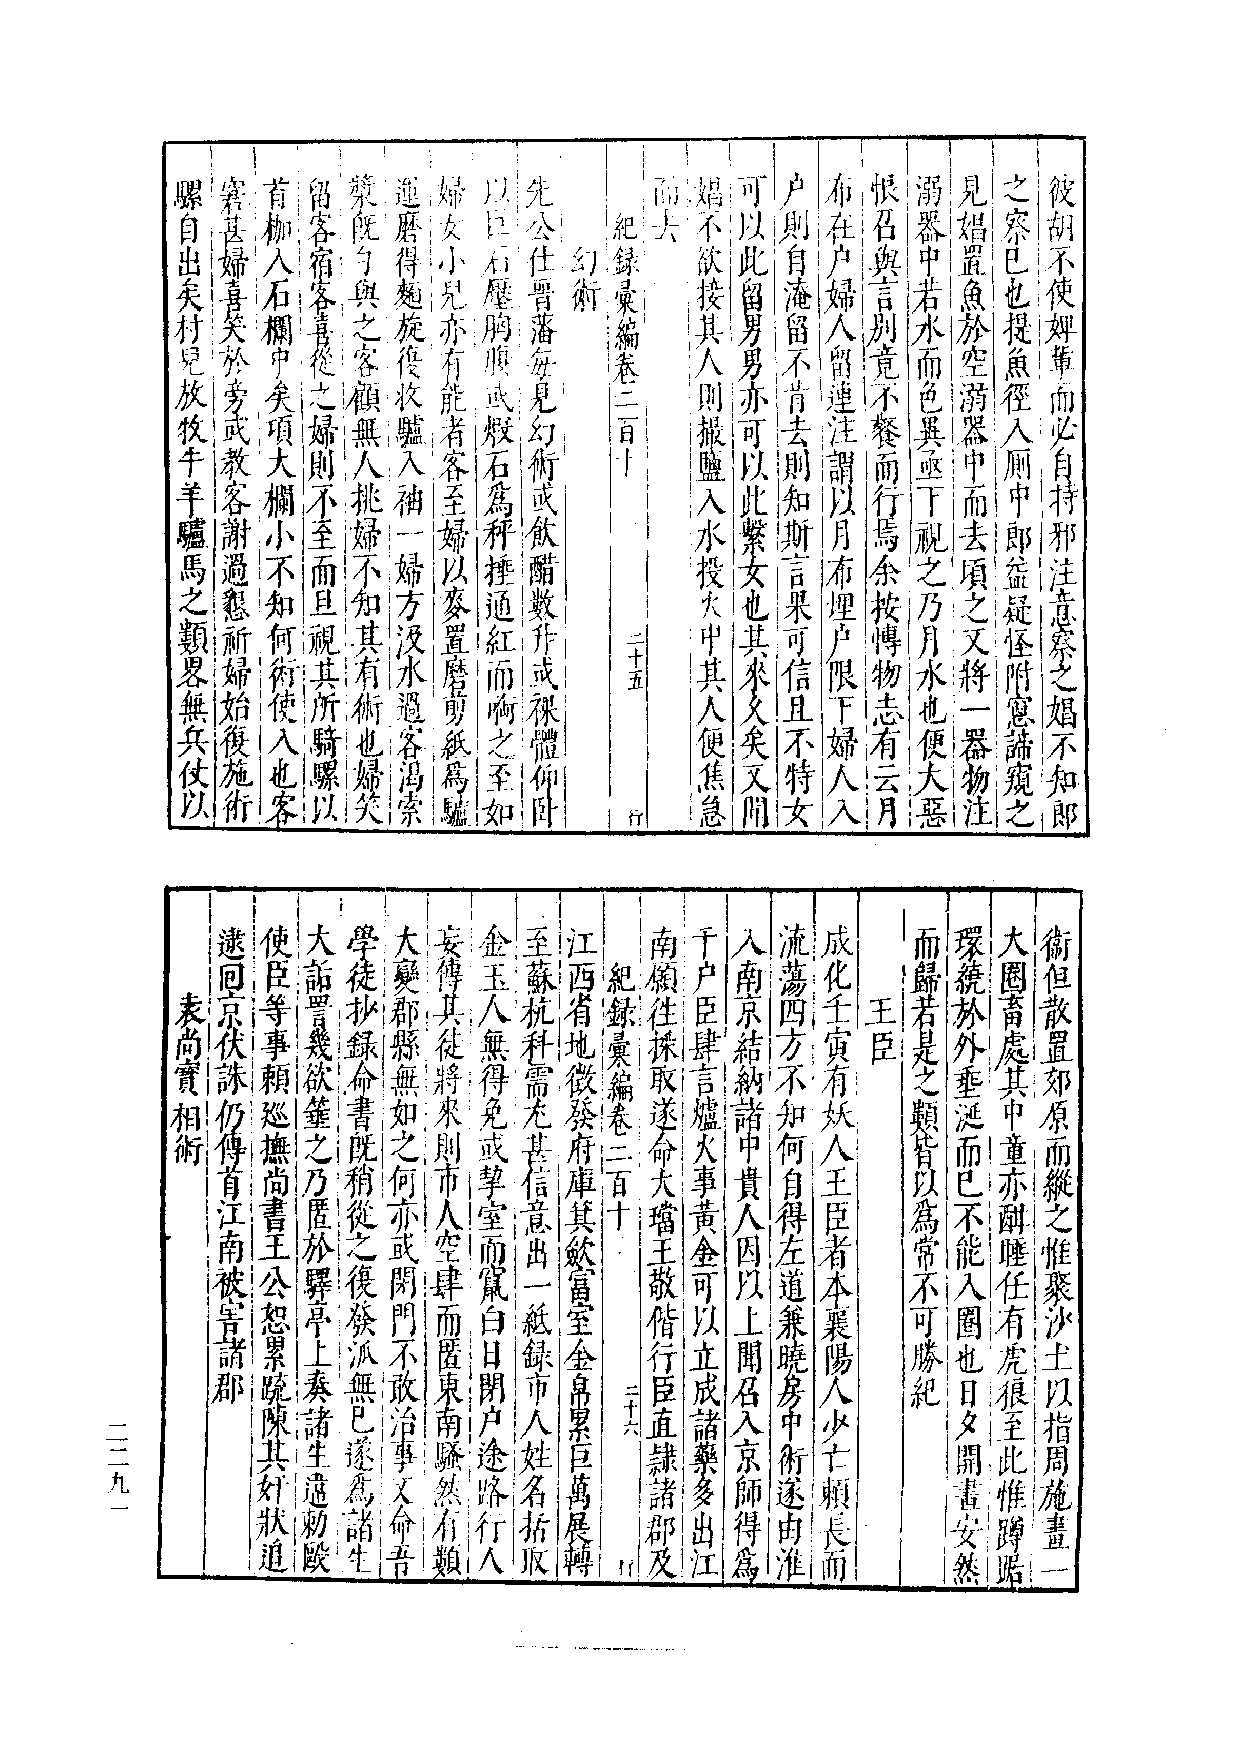 彼胡不使婢輩而必自持邪注意察之娼不知郎
之察巳也提魚徑入厠中郎益疑怪附窻諦窺之
見娼置魚於空溺器中而去頃之又將一器物注
溺器中若水而色異亟下視之乃月水也便大惡
恨召與言别竟不餐而行焉余按愽物志有云月
布在户婦人留連注謂以月布埋户限下婦人入
户則自淹留不肯去則知斯言果可信且不特女
可以此留男男亦可以此繫女也其來久矣又聞
娼不欲接其人則撮鹽入水投火中其人便焦急
而去
紀録彙編卷二百十 二十五 行
幻術
先公仕晋藩每見幻術或飲醋數升或裸體仰卧
以巨石壓胸腹或煅石爲秤捶通紅而啣之至如
婦女小兒亦有能者客至婦以麥置磨剪紙爲驢
運磨得麵旋復收驢入袖一婦方汲水過客渴索
漿既勺與之客顧無人挑婦不知其有術也婦笑
留客宿客喜從之婦則不至而且視其所騎騾以
首枷入石欄中矣項大欄小不知何術使入也客
窘甚婦喜笑於旁或教客謝過懇祈婦始復施術
騾自出矣村兒放牧牛羊驢馬之類畧無兵仗以
衞但散置郊原而縱之惟聚沙土以指周施畫一
大圈畜處其中童亦酣睡任有虎狼至此惟蹲踞
環繞於外垂涎而巳不能入圈也日夕開畫安然
而歸若是之類皆以爲常不可勝紀
王臣
成化壬寅有妖人王臣者本襄陽人少亡頼長而
流蕩四方不知何自得左道兼曉房中術遂由淮
入南京結納諸中貴人因以上聞召入京師得爲
千户臣肆言爐火事黃金可以立成諸藥多出江
南願往採取遂命大璫王敬偕行臣直隷諸郡及
紀録彙編卷二百十 二十六 行
江西省地徵發府庫箕歛富室金帛累巨萬展轉
至蘇杭科需尤甚信意出一紙録市人姓名括取
金玉人無得免或挈室而竄白日閉户途路行人
妄傳其徒將來則市人空肆而匿東南騷然有類
大變郡縣無如之何亦或閉門不敢治事又命吾
學徒抄録命書既稍從之復發派無已遂爲諸生
大詬詈幾欲箠之乃匿於驛亭上奏諸生違勑毆
使臣等事頼廵撫尚書王公恕累疏陳其奸狀追
逮囘京伏誅仍傳首江南被害諸郡
袁尚寶相術
二二九一